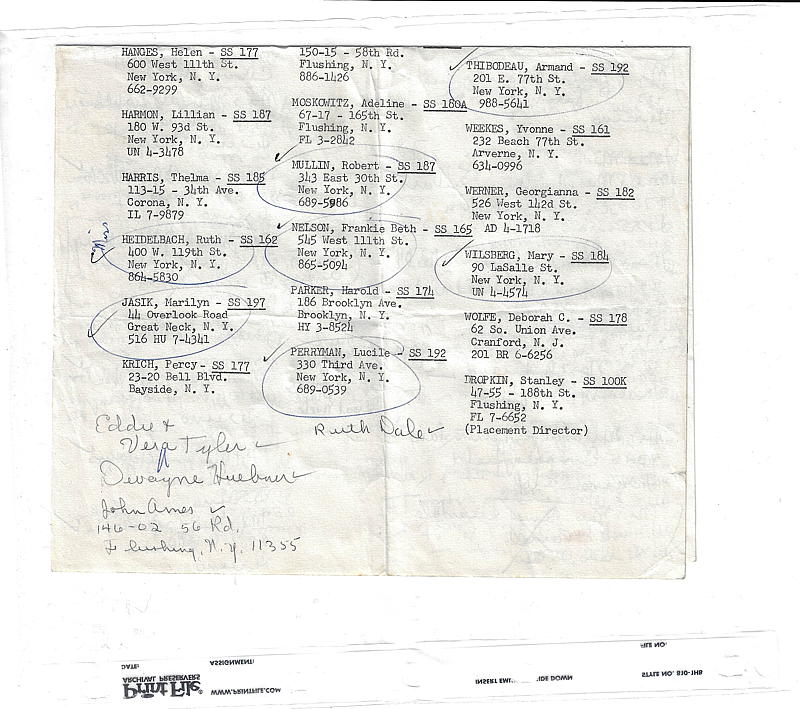 HANGES, Helen - SS 177
600 West 111th St.
New York, N. Y.
662-9299
HARMON, Lillian - SS 187
180 W. 93d St.
New York, N. Y.
UN 4-3478
HARRIS, Thelma - SS 185
113-15 - 34th Ave.
Corona, N. Y.
IL 7-9879
HEIDELBACH, Ruth - SS 162
400 W. 119th St.
New York, N. Y.
864-5830
JASIK, Marilyn - SS 197
44 Overlook Road
Great Neck, N. Y.
516 HU 7-4341
KRICH, Percy - SS 177
23-20 Bell Blvd.
Bayside, N. Y.
150-15 - 58th Rd.
Flushing, N. Y.
886-1426
MOSKOWITZ, Adeline - SS 180A
67-17 - 165th St.
Flushing, N. Y.
FL 3-2842
MULLIN, Robert - SS 187
343 East 30th St.
New York, N. Y.
689-5986
NELSON, Frankie Beth - SS 165
545 West 111th St.
New York, N. Y.
865-5094
PARKER, Harold - SS 174
186 Brooklyn Ave.
Brooklyn, N. Y.
HY 3-8524
PERRYMAN, Lucile - SS 192
330 Third Ave.
New York, N. Y.
689-0539
THIBODEAU, Armand - SS 192
201 E. 77th St.
New York, N. Y.
988-5641
WEEKES, Yvonne - SS 161
232 Beach 77th St.
Arverne, N. Y.
634-0996
WERNER, Georgianna - SS 182
526 West 142d St.
New York, N. Y.
AD 4-1718
WILSBERG, Mary - SS 184
90 LaSalle St.
New York, N. Y.
UN 4-4574
WOLFE, Deborah C. - SS 178
62 So. Union Ave.
Cranford, N. J.
201 BR 6-6256
DROPKIN, Stanley - SS 100K
47-55 - 188th St.
Flushing, N. Y.
FL 7-6652
(Placement Director)
Eddie +
Vera Tyler
Ruth Dale
Dwayne Huebner
John Ames
146-02 56 Rd.
Flushing, N.Y. 11355
DATE:
ASSIGNMENT:
FILE NO.
ARCHIVAL PRESERVERS
Print File® WWW.PRINTFILE.COM
INSERT EMUL SIDE DOWN
STYLE NO. 810-1HB